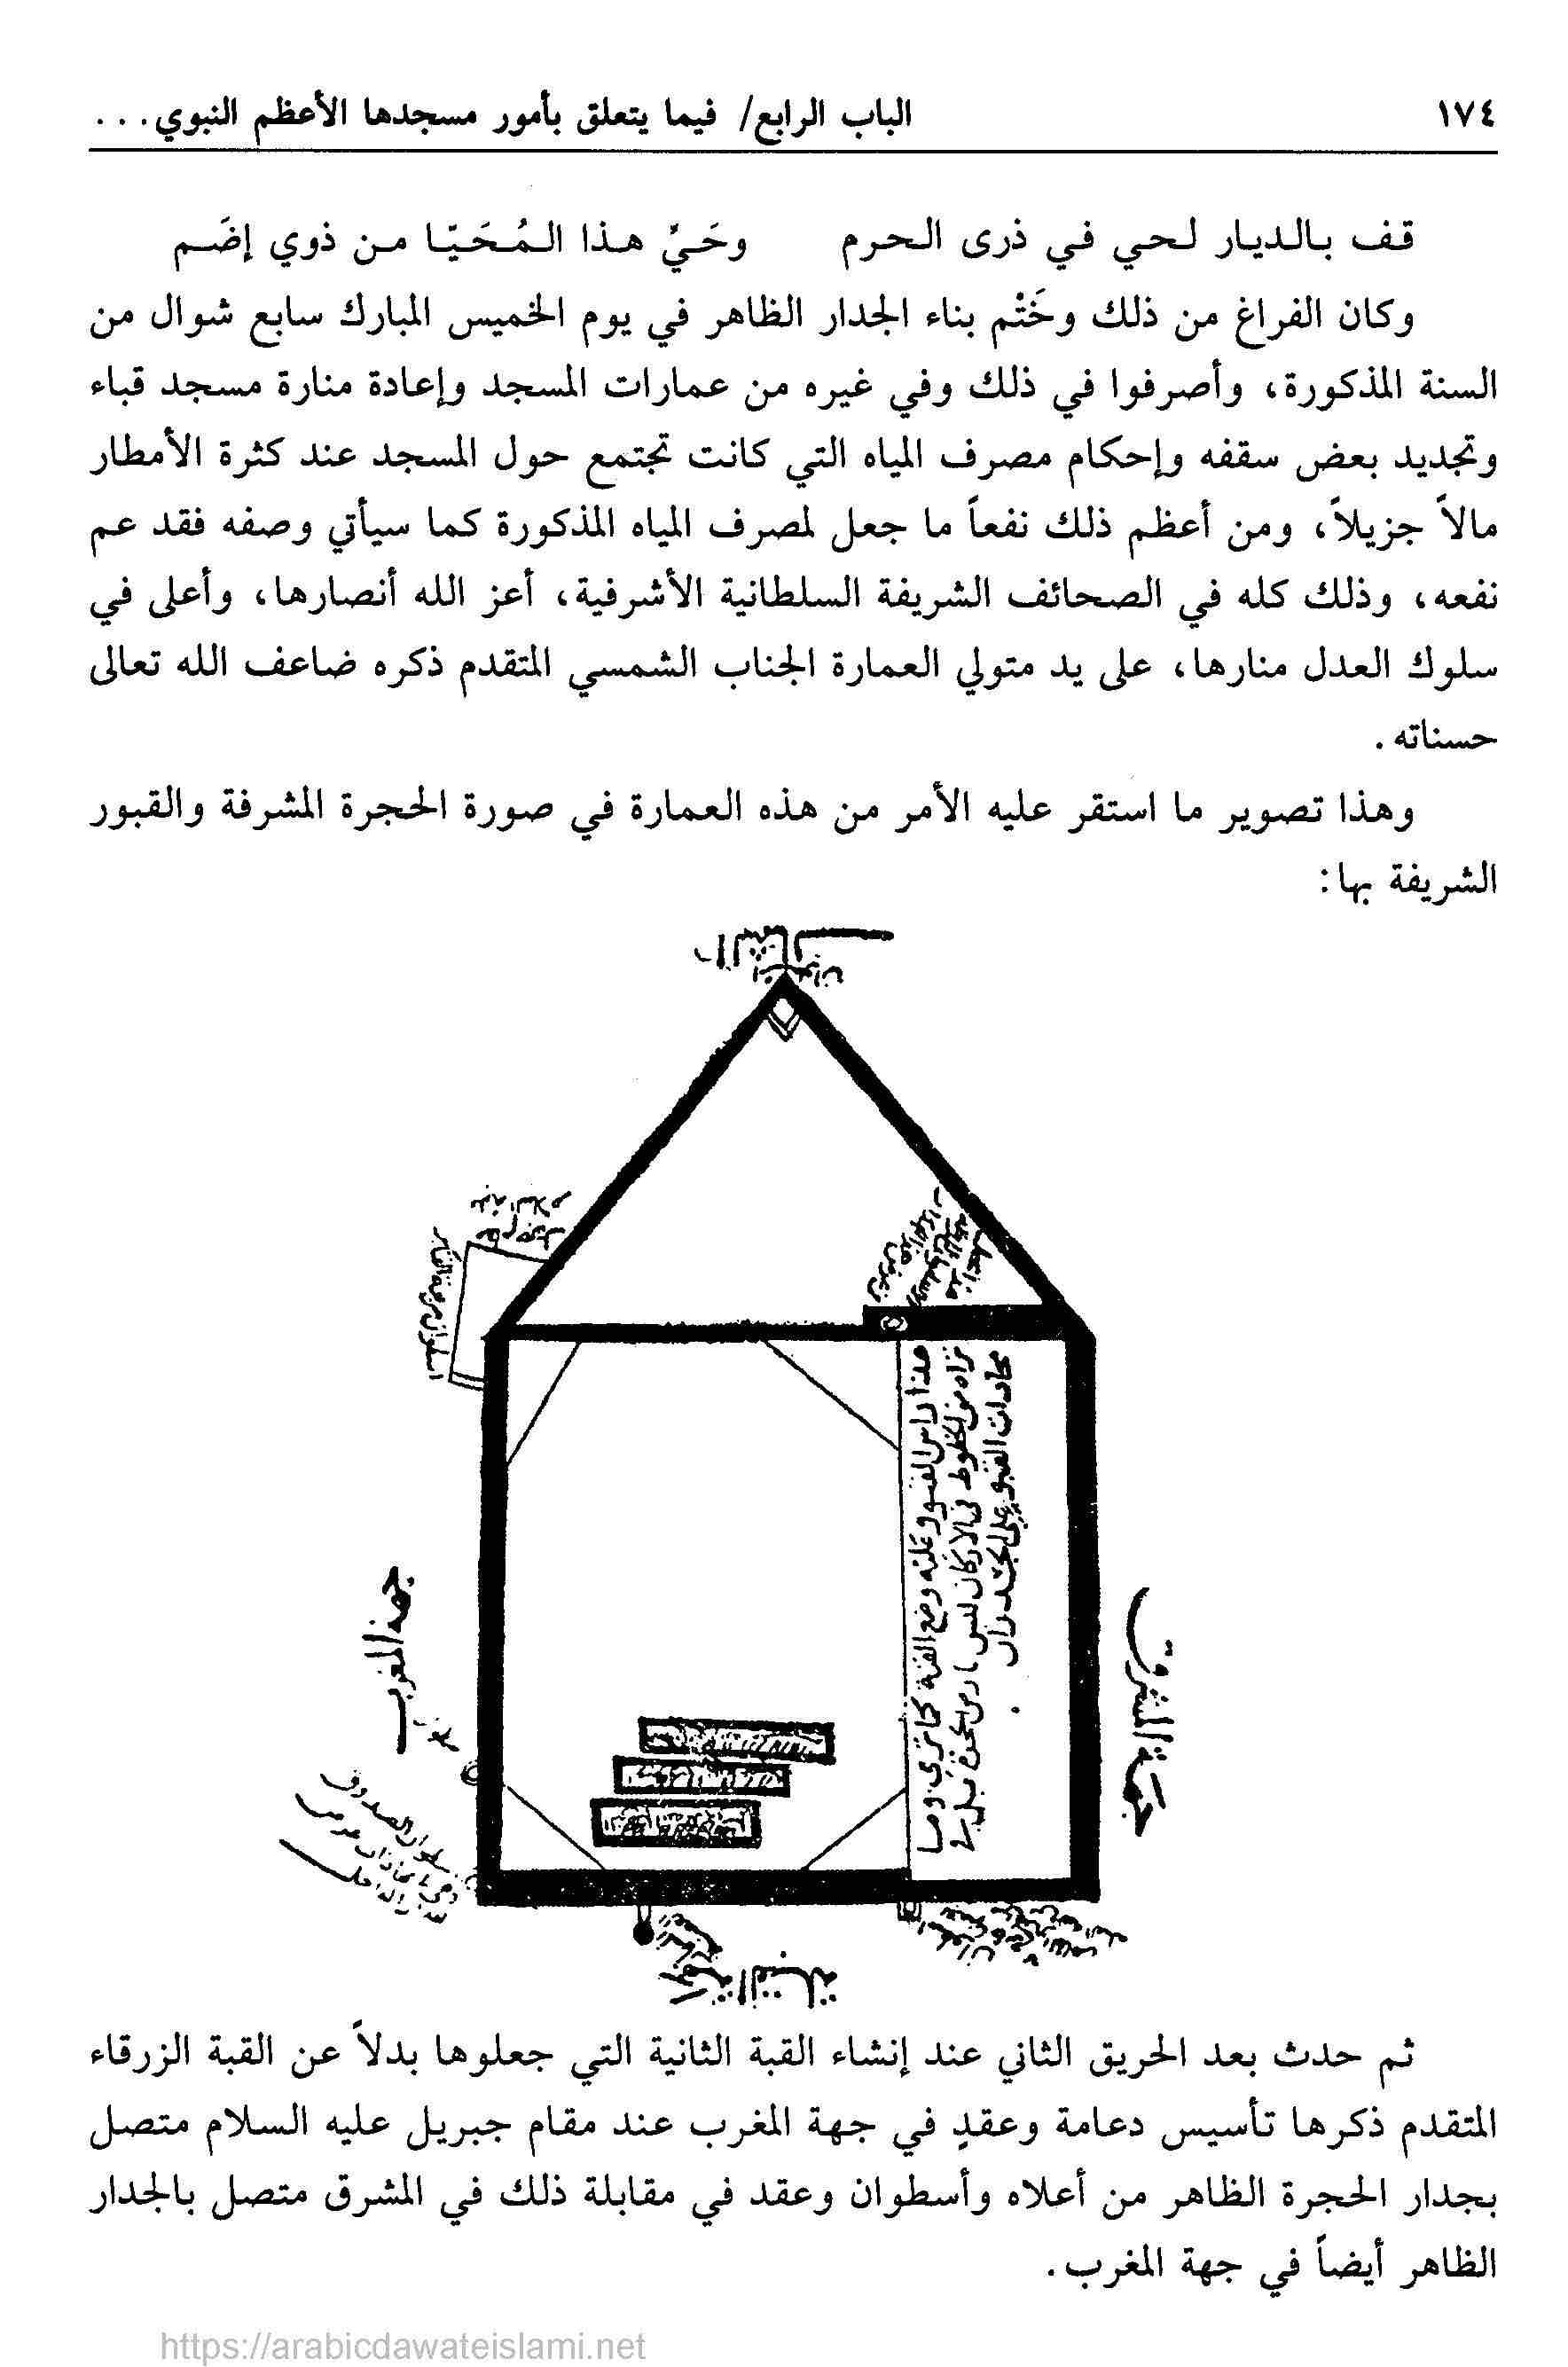 ١٧٤ الباب الرابع/ فيما يتعلق بأمور مسجدها الأعظم النبوي...
قف بالديار لحي في ذرى الحرم وحَيِّ هذا المُحَيّا من ذوي إضَم
وكان الفراغ من ذلك وخَتْم بناء الجدار الظاهر في يوم الخميس المبارك سابع شوال من
السنة المذكورة، وأصرفوا في ذلك وفي غيره من عمارات المسجد وإعادة منارة مسجد قباء
وتجديد بعض سقفه وإحكام مصرف المياه التي كانت تجتمع حول المسجد عند كثرة الأمطار
مالاً جزيلاً، ومن أعظم ذلك نفعاً ما جعل لمصرف المياه المذكورة كما سيأتي وصفه فقد عم
نفعه، وذلك كله في الصحائف الشريفة السلطانية الأشرفية، أعز الله أنصارها، وأعلى في
سلوك العدل منارها، على يد متولي العمارة الجناب الشمسي المتقدم ذكره ضاعف الله تعالى
حسناته.
وهذا تصوير ما استقر عليه الأمر من هذه العمارة في صورة الحجرة المشرفة والقبور
الشريفة بها:
عليه السلام
اسطوان مربعة القبر
هذا راس القبو وعليه وضع القبة كما ترى وما
تراه من الخطوط في الاركان ليس بارض الحجرة بل
محادات القبو على الجدران
جهة المغرب
جهة المشرق
جهة القبلة
ثم حدث بعد الحريق الثاني عند إنشاء القبة الثانية التي جعلوها بدلاً عن القبة الزرقاء
المتقدم ذكرها تأسيس دعامة وعقدٍ في جهة المغرب عند مقام جبريل عليه السلام متصل
بجدار الحجرة الظاهر من أعلاه وأسطوان وعقد في مقابلة ذلك في المشرق متصل بالجدار
الظاهر أيضاً في جهة المغرب.
https://arabicdawateislami.net